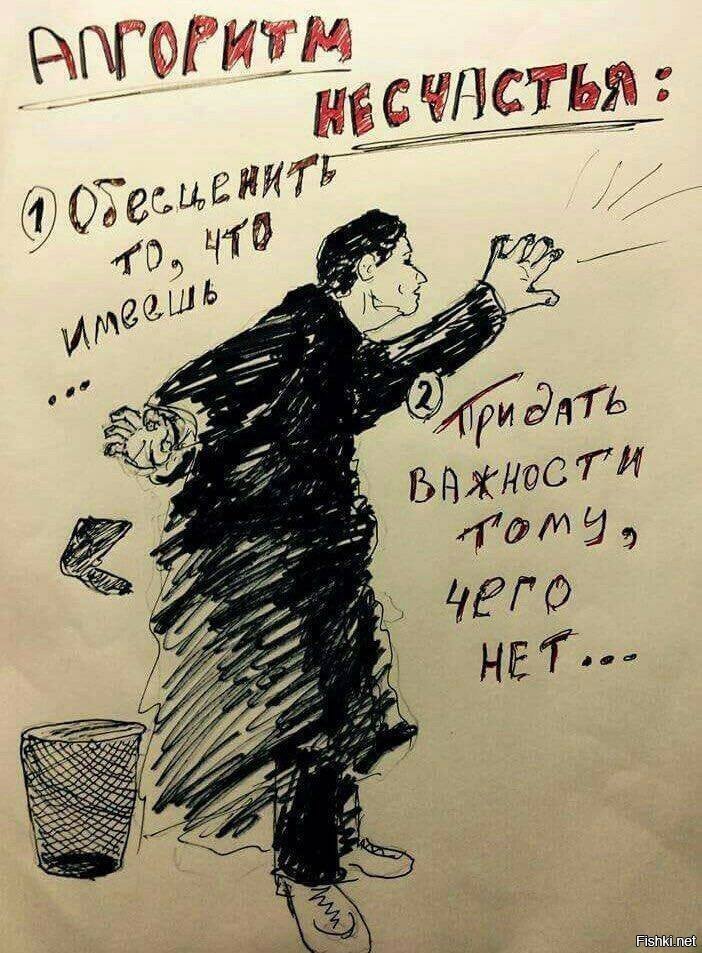 АЛГОРИТМ
НЕСЧАСТЬЯ:
1 Обесценить
то, что
имеешь
...
2 Придать
важности
тому,
чего
нет...
Fishki.net